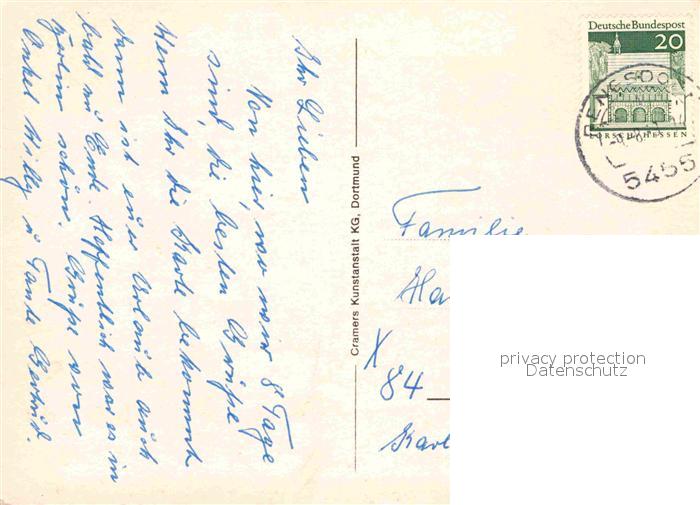 Ihr Lieben
Von hier, wo wir 8 Tage
sind, die besten Grüße
Wenn Ihr die Karte bekommt
dann ist euer Urlaub auch
bald zu Ende. Hoffentlich war es in
Berlin schön. Grüße von
Onkel Willy u Tante Gertrud.
Cramers Kunstanstalt KG, Dortmund
Deutsche Bundespost
20
LORSCH/HESSEN
5455
Familie
Ha
X
84
Karl
privacy protection
Datenschutz